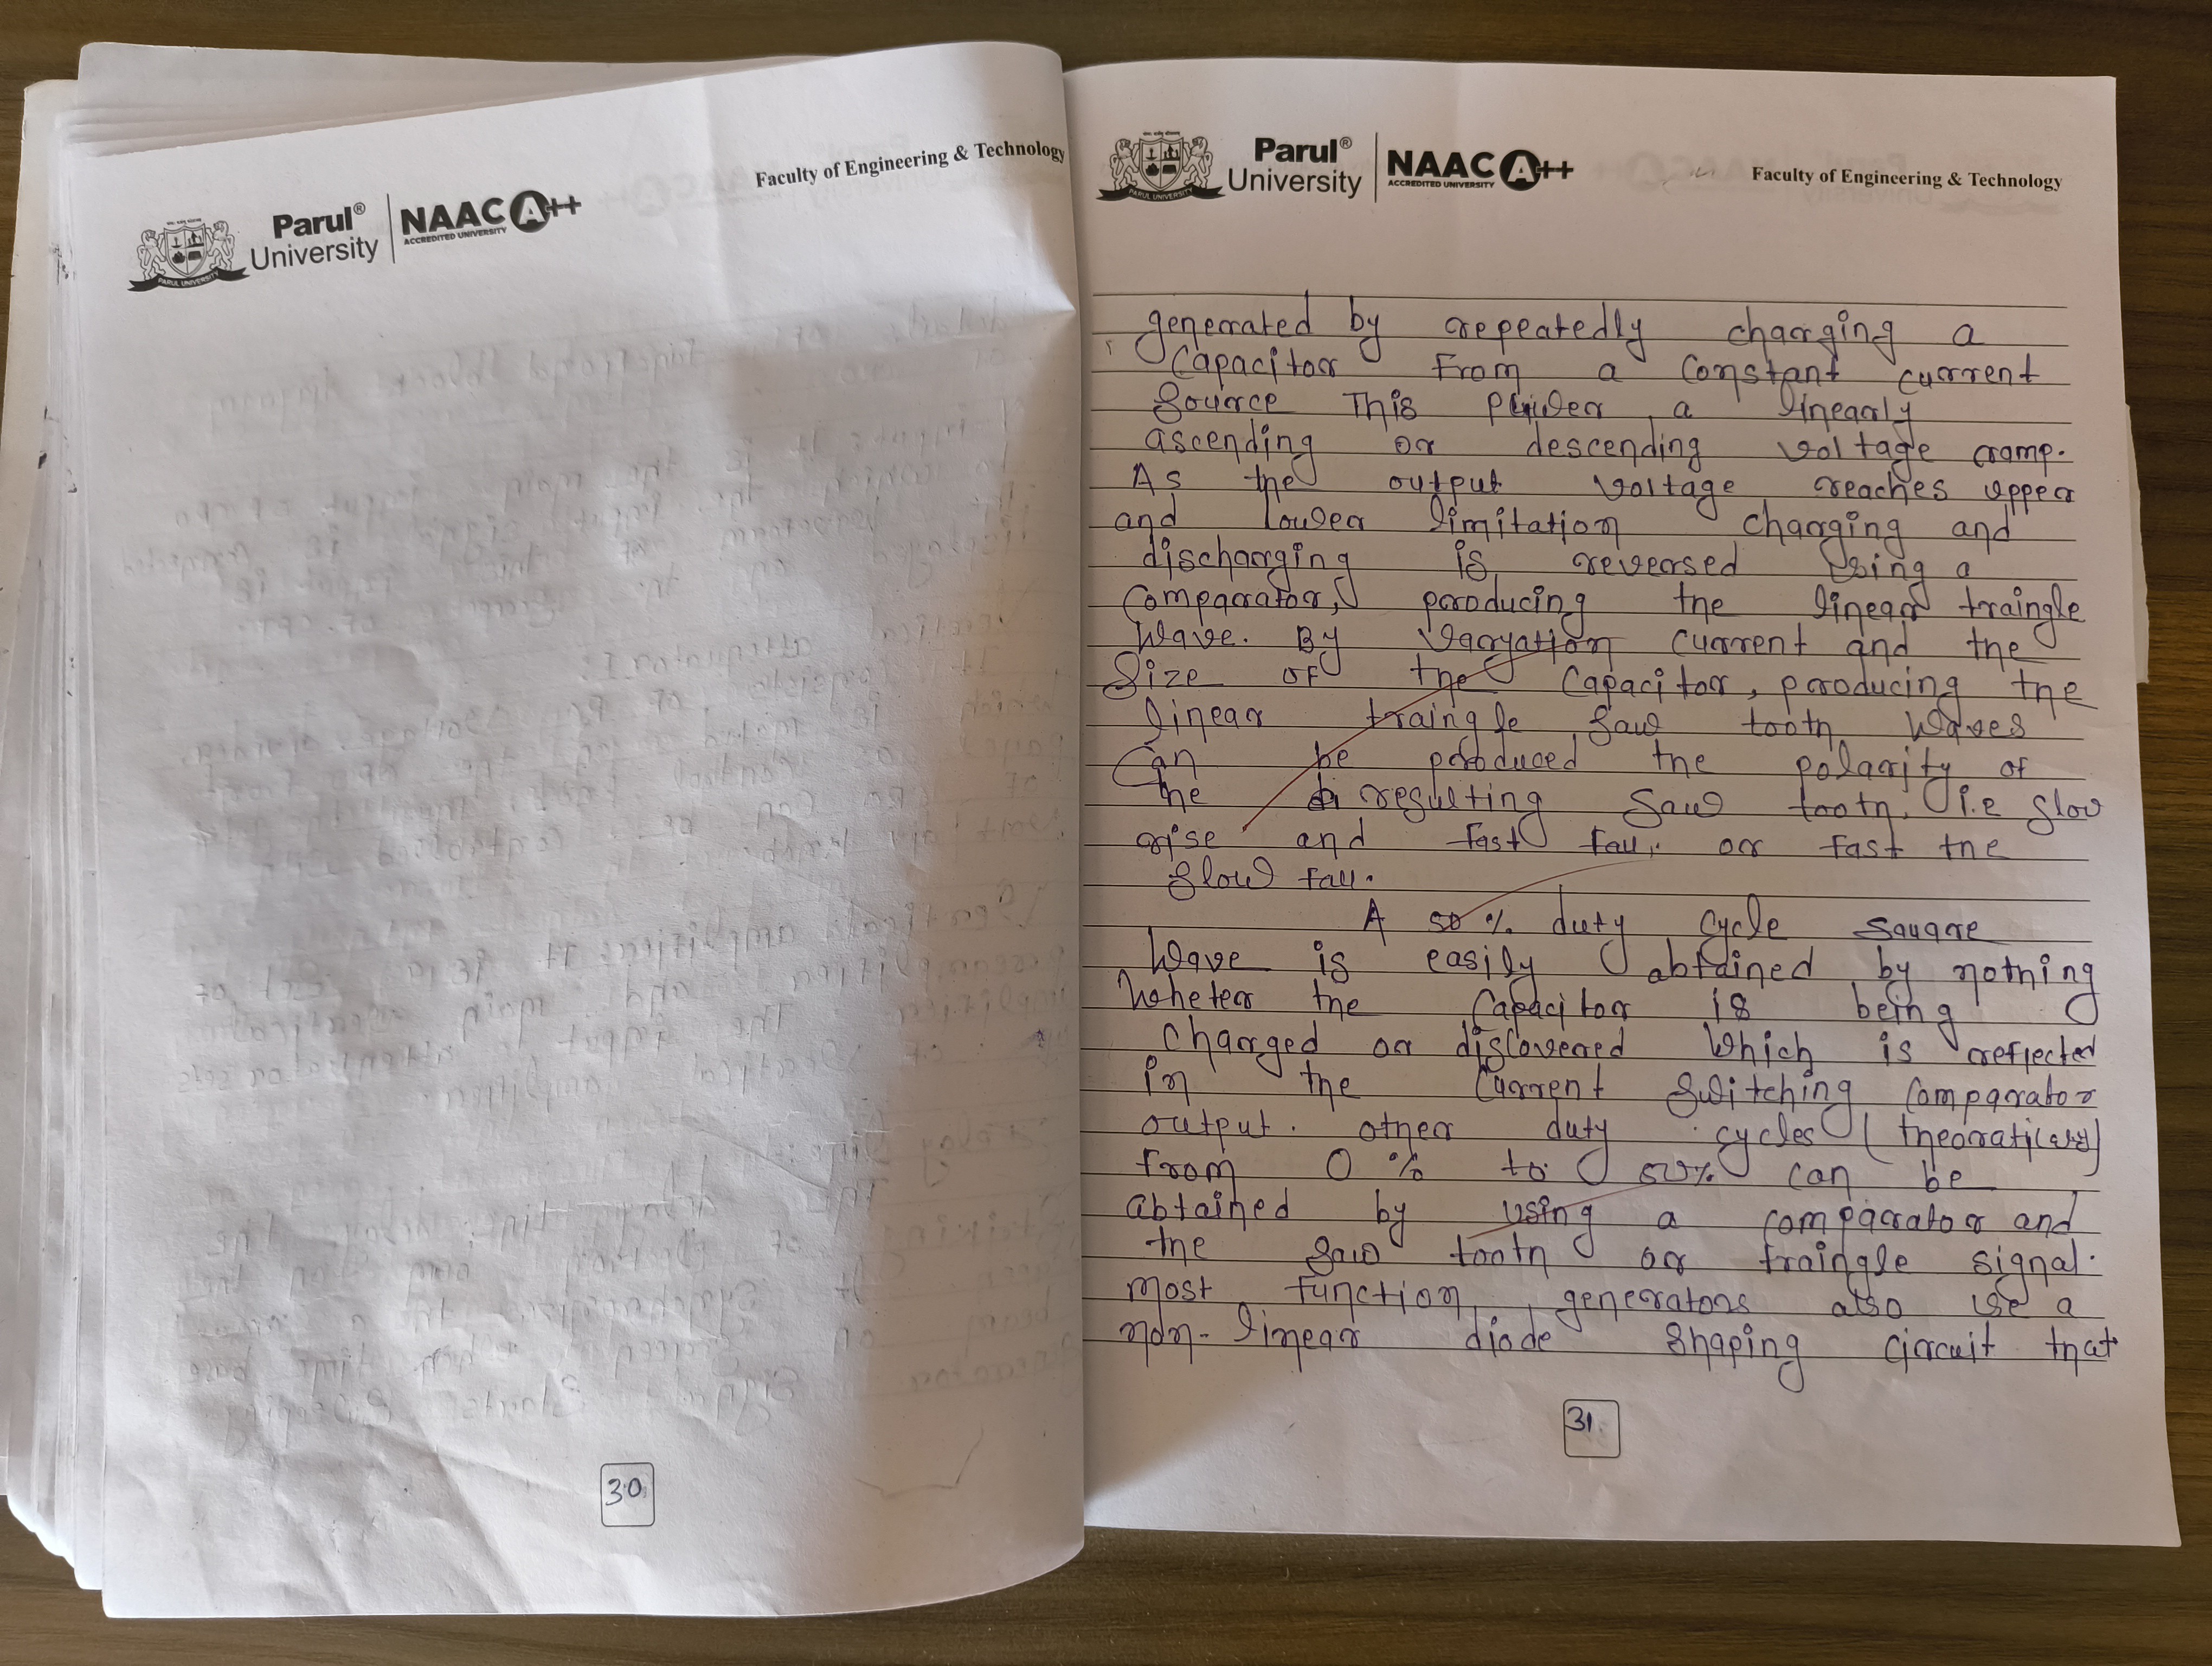 Faculty of Engineering & Technology
Parul® University
NAAC A++
ACCREDITED UNIVERSITY
PARUL UNIVERSITY
30
Parul® University
NAAC A++
ACCREDITED UNIVERSITY
PARUL UNIVERSITY
Faculty of Engineering & Technology
generated by repeatedly charging a
Capacitor From a Constant current
Source This a linearly
ascending or descending voltage ramp.
As the output voltage reaches upper
and lower limitation charging and
discharging is reversed using a
Comparator, producing the linear traingle
Wave. By varyation current and the
Size of the Capacitor, producing the
linear traingle saw tooth waves
Can be produced the polarity of
the resulting saw tooth. i.e slow
rise and fast fall. or fast the
slow fall.
A 50 % duty cycle square
Wave is easily abtained by nothing
Wheter the Capacitor is being
charged or discovered which is reflected
in the Current switching comparator
output. other duty cycles (theoratically)
from 0 % to 50% can be
abtained by using a comparator and
the saw tooth or traingle signal.
most function generators also use a
non-linear diode shaping circuit that
31.